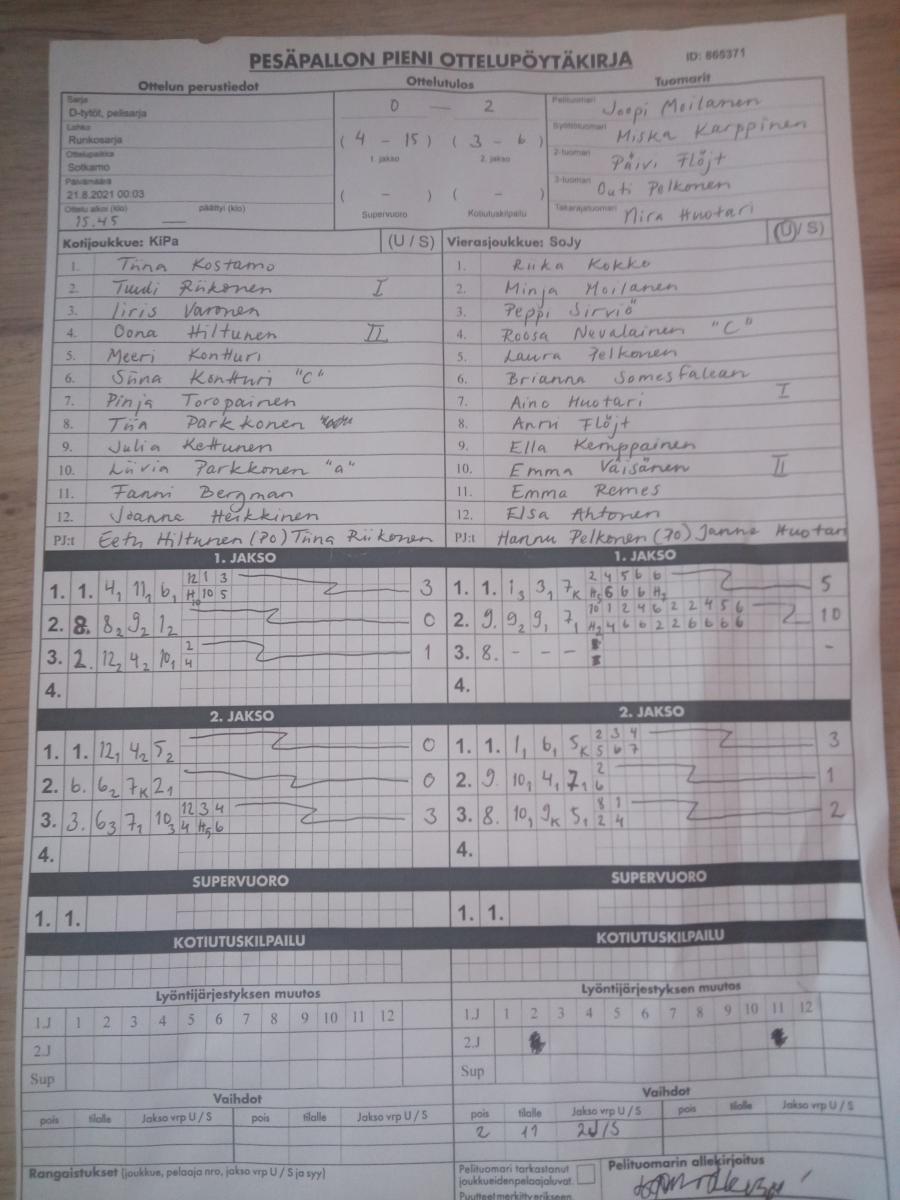 PESÄPALLON PIENI OTTELUPÖYTÄKIRJA ID: 865371
Ottelun perustiedot Ottelutulos Tuomarit
Sarja
D-tytöt, pelisarja
Lohko
Runkosarja
Ottelupaikka
Sotkamo
Päivämäärä
21.8.2021 00:03
Ottelu alkoi (klo) päättyi (klo)
15.45 —
0 — 2
( 4 - 15 ) ( 3 - 6 )
1. jakso 2. jakso
( - ) ( - )
Supervuoro Kotiutuskilpailu
Pelituomari Joopi Moilanen
Syöttötuomari Miska Karppinen
2-tuomari Päivi Flöjt
3-tuomari Outi Pelkonen
Takarajatuomari Mira Huotari
Kotijoukkue: KiPa (U / S)
1. Tiina Kostamo
2. Tuuli Riikonen I
3. Iiris Varonen
4. Oona Hiltunen II
5. Meeri Kontturi
6. Siina Kontturi "C"
7. Pinja Toropainen
8. Tiia Parkkonen
9. Julia Kettunen
10. Liivia Parkkonen "a"
11. Fanni Bergman
12. Joanna Heikkinen
PJ:t Eetu Hiltunen (70) Tiina Riikonen
Vierasjoukkue: SoJy (U / S)
1. Riika Kokko
2. Minja Moilanen
3. Peppi Sirviö
4. Roosa Nevalainen "C"
5. Laura Pelkonen
6. Brianna Somesfalean
7. Aino Huotari I
8. Anni Flöjt
9. Ella Kemppainen
10. Emma Väisänen II
11. Emma Remes
12. Elsa Ahtonen
PJ:t Hannu Pelkonen (70) Janne Huotari
1. JAKSO
1. 1. 4₁ 11₁ 6₁ 12 1 3 3
H₁₀ 10 5
2. 8. 8₂ 9₂ 1₂ 0
3. 2. 12₂ 4₂ 10₁ 2 1
4
4.
1. JAKSO
1. 1. 1₃ 3₁ 7K 2 4 5 6 6 5
H₅ 6 6 6 H₇
2. 9. 9₂ 9₁ 7₁ 10 1 2 4 6 2 2 4 5 6 10
H₂ 4 6 6 2 2 6 6 6 6
3. 8. - - - -
4.
2. JAKSO
1. 1. 12₁ 4₂ 5₂ 0
2. 6. 6₂ 7K 2₁ 0
3. 3. 6₃ 7₁ 10₃ 12 3 4 3
4 H₅ 6
4.
2. JAKSO
1. 1. 1₁ 6₁ 5K 2 3 4 3
5 6 7
2. 9. 10₁ 4₁ 7₁ 2 1
6
3. 8. 10₁ 9K 5₁ 8 1 2
2 4
4.
SUPERVUORO SUPERVUORO
1. 1. 1. 1.
KOTIUTUSKILPAILU KOTIUTUSKILPAILU
Lyöntijärjestyksen muutos Lyöntijärjestyksen muutos
1.J 1 2 3 4 5 6 7 8 9 10 11 12 1.J 1 2 3 4 5 6 7 8 9 10 11 12
2.J 2.J
Sup Sup
Vaihdot Vaihdot
pois tilalle Jakso vrp U / S pois tilalle Jakso vrp U / S pois tilalle Jakso vrp U / S pois tilalle Jakso vrp U / S
2 11 2J/S
Rangaistukset (joukkue, pelaaja nro, jakso vrp U / S ja syy)
Pelituomari tarkastanut
joukkueidenpelaajaluvat.
Puutteet merkitty erikseen.
Pelituomarin allekirjoitus